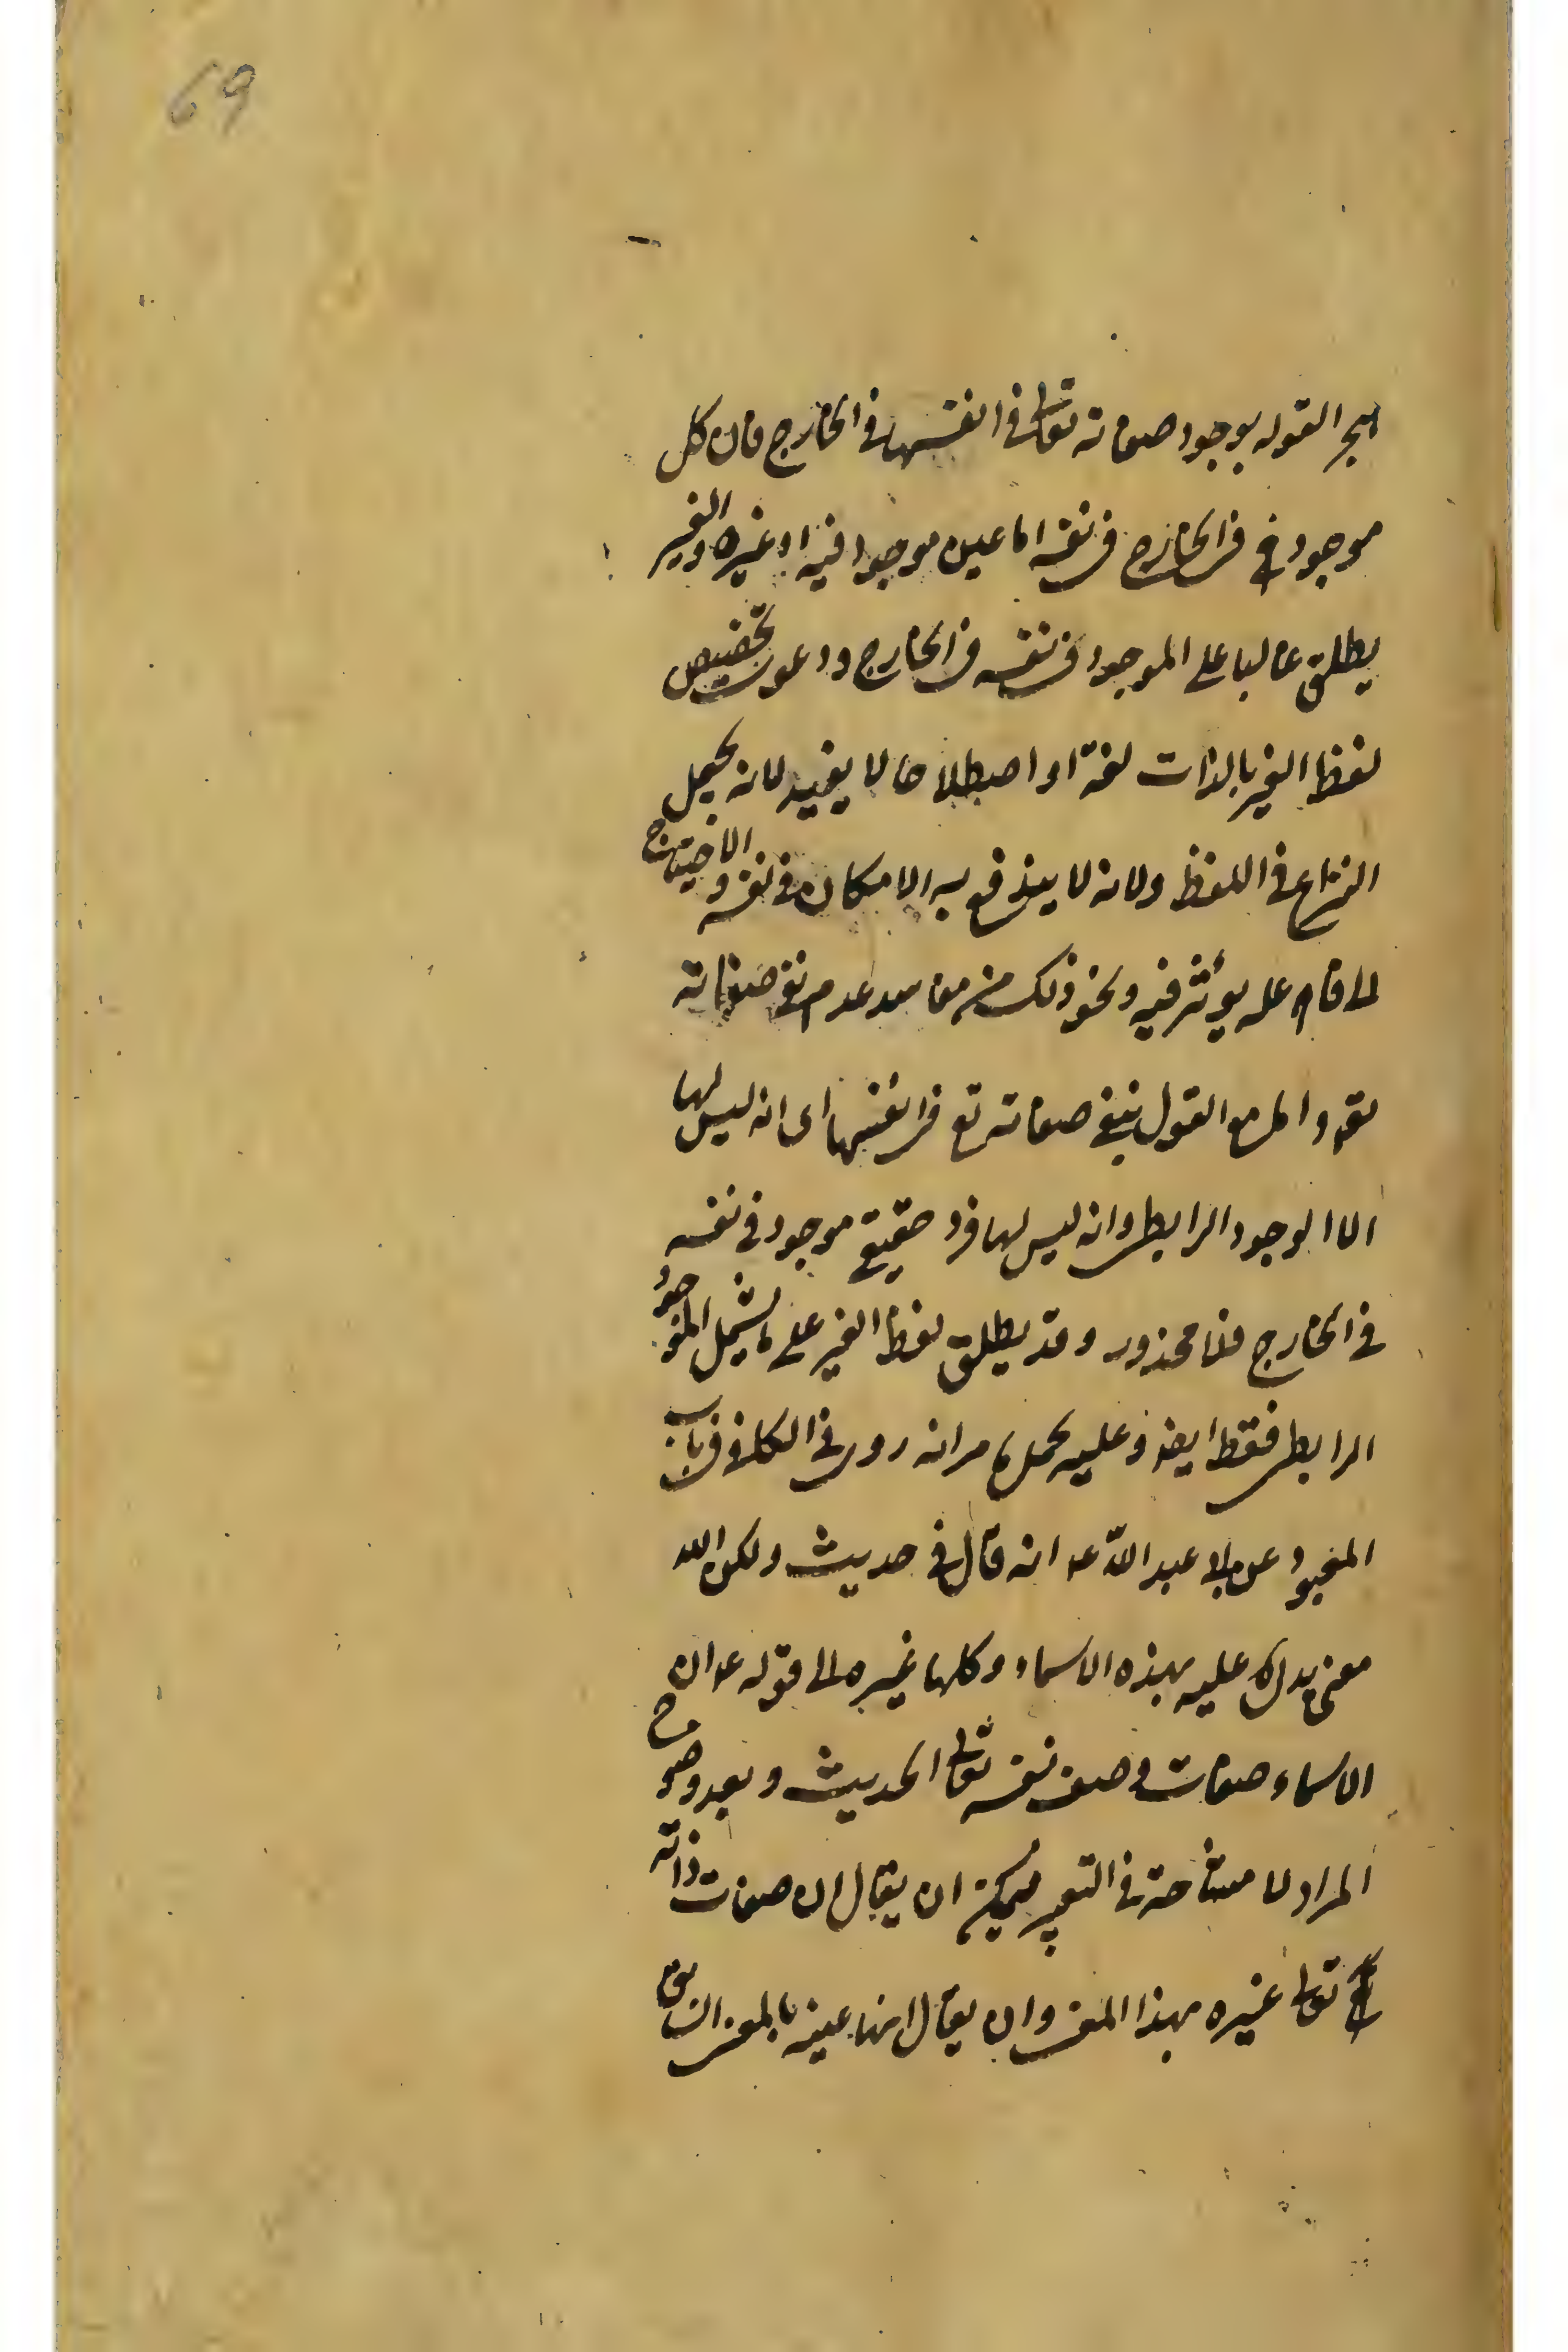 69
القول بوجود صفاته تعالى في انفسها في الخارج فان كل
موجود في الخارج في نفسه اما عين موجود فيه او غيره والغير
يطلق غالبا على الموجود في نفسه في الخارج ودعوى تخصيص
لفظ الغير بالذات لغة او اصطلاحا لا يفيد لانه يجعل
النزاع في اللفظ ولانه لا يندفع به الامكان في نفسه والاحتياج
الى فاعل يؤثر فيه ونحو ذلك من مفاسد عدم نفي صفاته
واما مع القول بنفي صفاته تع في انفسها اى انه ليس لها
الا الوجود الرابطى وانه ليس لها فرد حقيقي موجود في نفسه
في الخارج فلا محذور وقد يطلق لفظ الغير على ما يشمل الموجود
الرابطى فقط ايضا وعليه يحمل ما مر انه روى في الكافى في باب
المعبود عن ابى عبد الله ع انه قال في حديث ولكن الله
معنى يدل عليه بهذه الاسماء وكلها غيره الى قوله ع ان
الاسماء صفات وصف نفسه تعالى الحديث وبعد وضوح
المراد لا مشاحة في التعبير فيمكن ان يقال ان صفات ذاته
تعالى غيره بهذا المعنى وان يقال انها عينه بالمعنى السابق